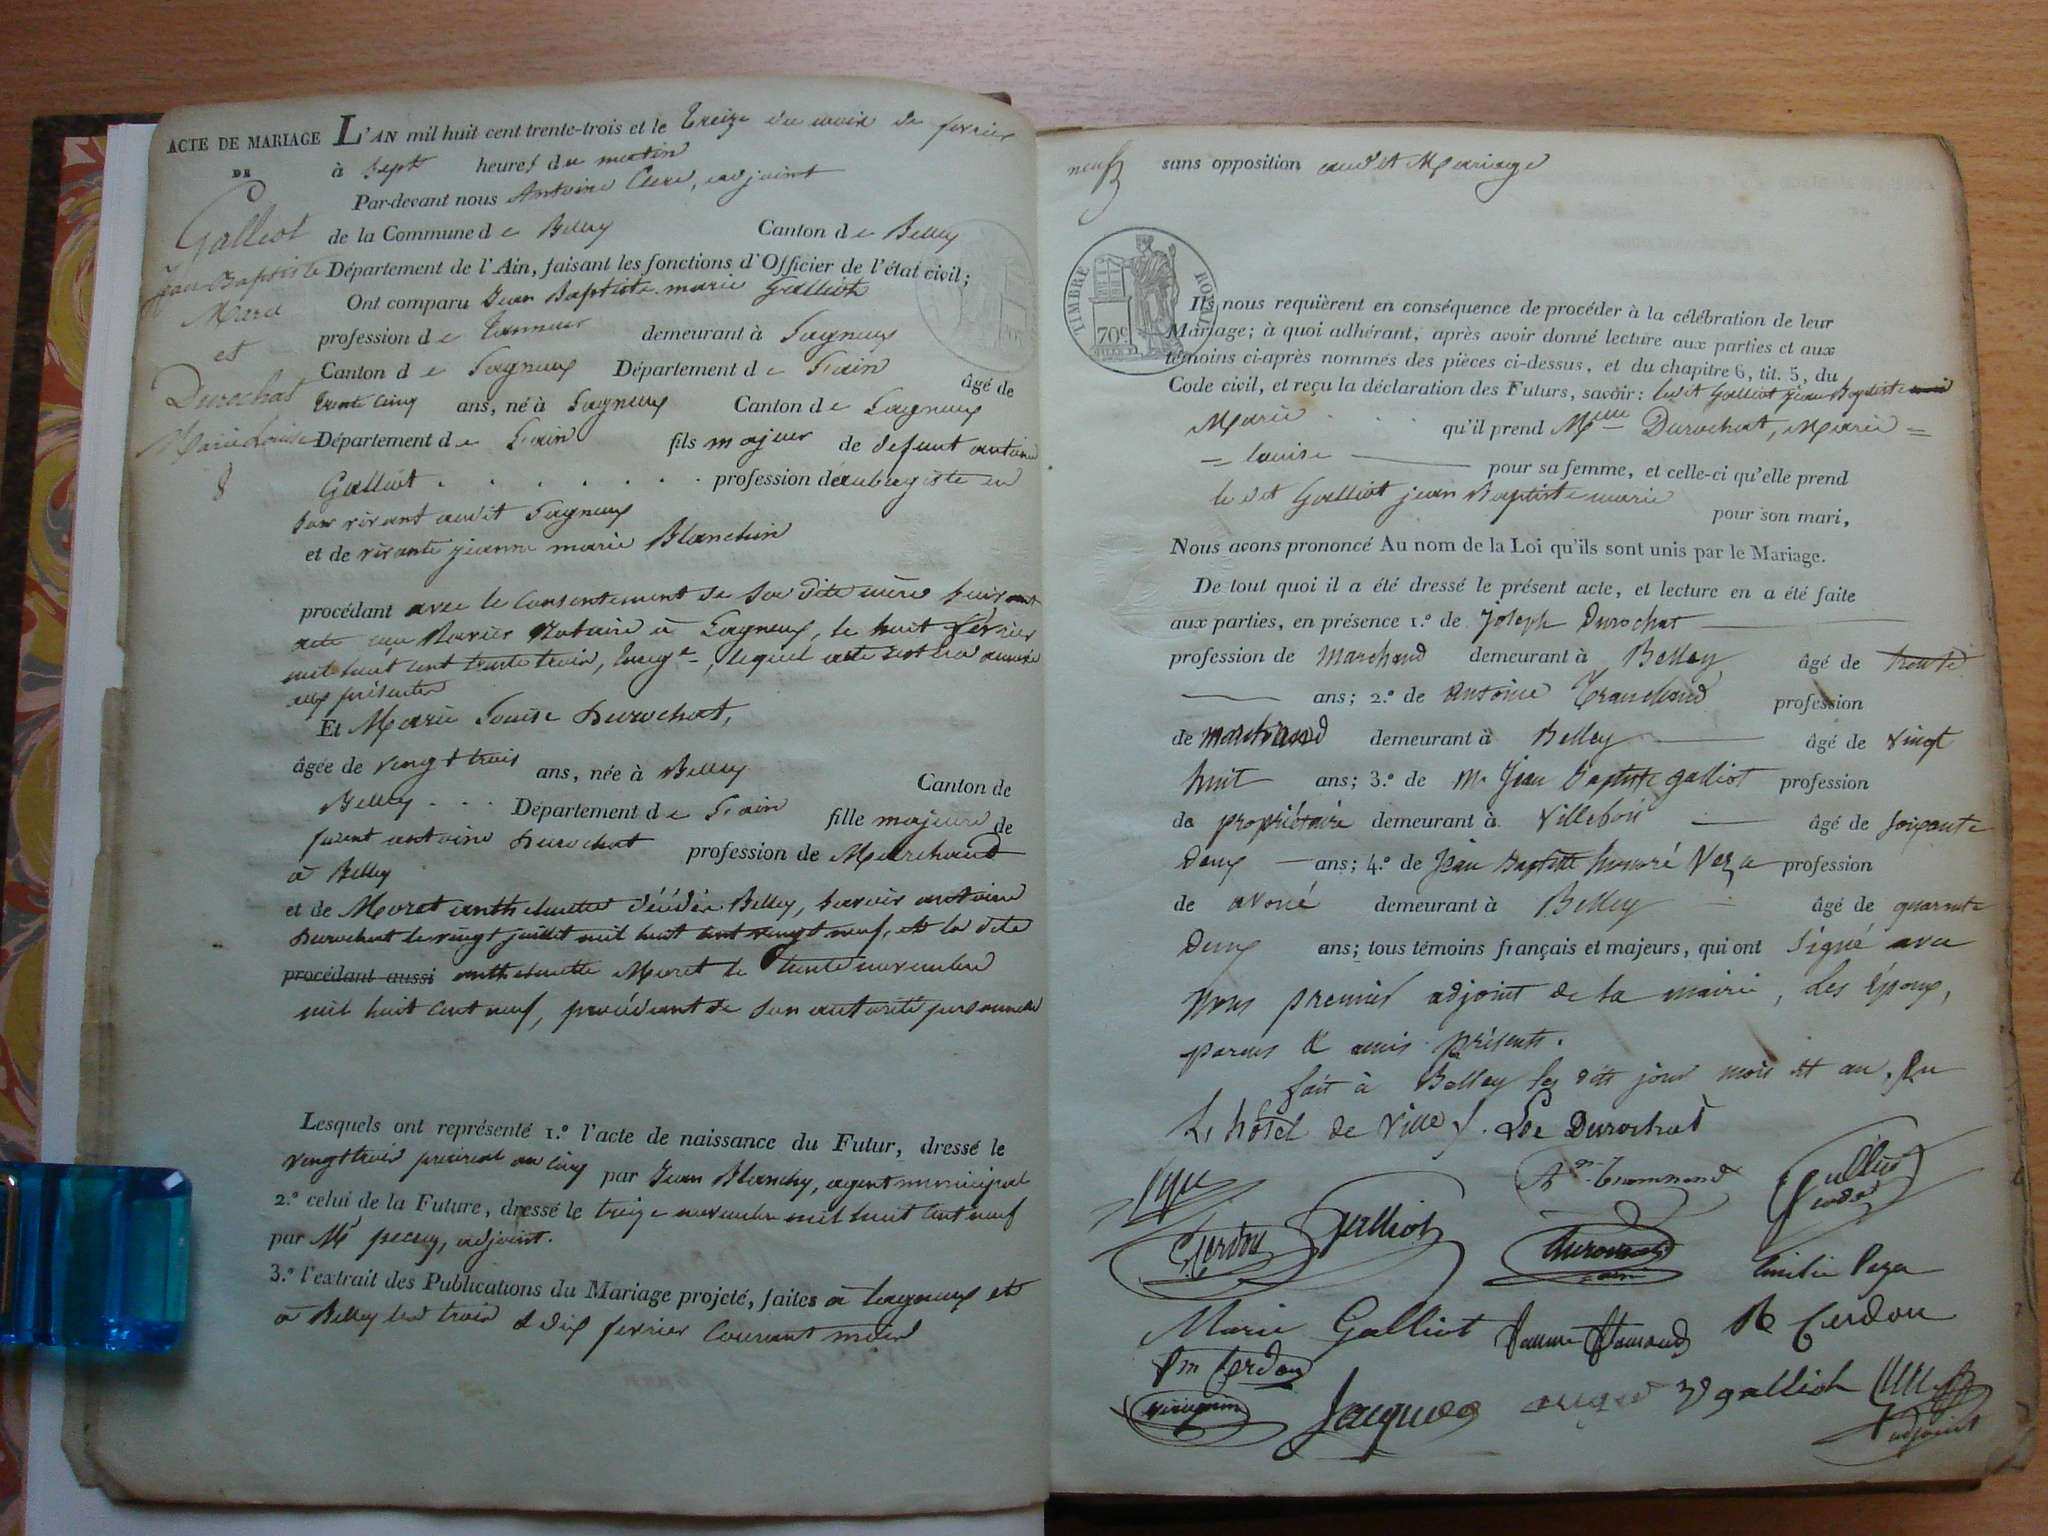 ACTE DE MARIAGE
DE
Galliot
Jean Baptiste
Marie
et
Durochat
Marie Louise
8
L'AN mil huit cent trente-trois et le treize du mois de fevrier
à sept heures du matin
Par-devant nous Antoine Clerc, adjoint
de la Commune de Belley Canton de Belley
Département de l'Ain, faisant les fonctions d'Officier de l'état civil;
Ont comparu Jean Baptiste marie Galliot
profession de tanneur demeurant à Lagneux
Canton de Lagneux Département de L'ain âgé de
trente cinq ans, né à Lagneux Canton de Lagneux
Département de L'ain fils majeur de defunt antoine
Galliot . . . . . . . profession d'aubergiste en
son vivant audit Lagneux
et de vivante jeanne marie Blanchin
procédant avec le consentement de sa dite mère suivant
acte reçu Notaire à Lagneux, le huit février
mil huit cent trente trois, lequel acte restera annexé
aux présentes
Et Marie Louise Durochat,
âgée de vingt trois ans, née à Belley Canton de
Belley . . . Département de L'ain fille majeure de
antoine Durochat profession de Marchand
à Belley
et de Moret anthelmette décédés à Belley, savoir antoine
Durochat le vingt juillet mil huit cent vingt neuf, et la dite
procédant aussi anthelmette Moret le trente novembre
mil huit cent neuf, procédant de son autorité personnelle
Lesquels ont représenté 1.º l'acte de naissance du Futur, dressé le
vingt trois prairial an cinq par Jean Blanchy, agent municipal
2.º celui de la Future, dressé le treize novembre mil huit cent neuf
par Mr pecuy, adjoint.
3.º l'extrait des Publications du Mariage projeté, faites à Lagneux et
à Belley les trois & dix fevrier courant mois
neuf
sans opposition audit Mariage
TIMBRE ROYAL
70c
Ils nous requièrent en conséquence de procéder à la célébration de leur
Mariage; à quoi adhérant, après avoir donné lecture aux parties et aux
témoins ci-après nommés des pièces ci-dessus, et du chapitre 6, tit. 5, du
Code civil, et reçu la déclaration des Futurs, savoir: ledit Galliot jean Baptiste
Marie . . qu'il prend Melle Durochat, Marie =
= louise pour sa femme, et celle-ci qu'elle prend
le dit Galliot jean Baptiste marie
pour son mari,
Nous avons prononcé Au nom de la Loi qu'ils sont unis par le Mariage.
De tout quoi il a été dressé le présent acte, et lecture en a été faite
aux parties, en présence 1.º de Joseph Durochat
profession de Marchand demeurant à Belley âgé de trente
ans; 2.º de Antoine Tranchand profession
de marchand demeurant à Belley âgé de vingt
huit ans; 3.º de Mr Jean Baptiste galliot profession
de propriétaire demeurant à Villebois âgé de soixante
deux ans; 4.º de Jean Baptiste honoré Veza profession
de avoué demeurant à Belley âgé de quarante
deux ans; tous témoins français et majeurs, qui ont signé avec
Nous premier adjoint de la mairie, Les époux,
parens & amis présents.
fait à Belley les dits jour mois et an. En
L'hôtel de Ville. Lse Durochat
Cerdon Galliot
Marie Galliot R Cerdon
Cerdon
Jacques galliot
adjoint